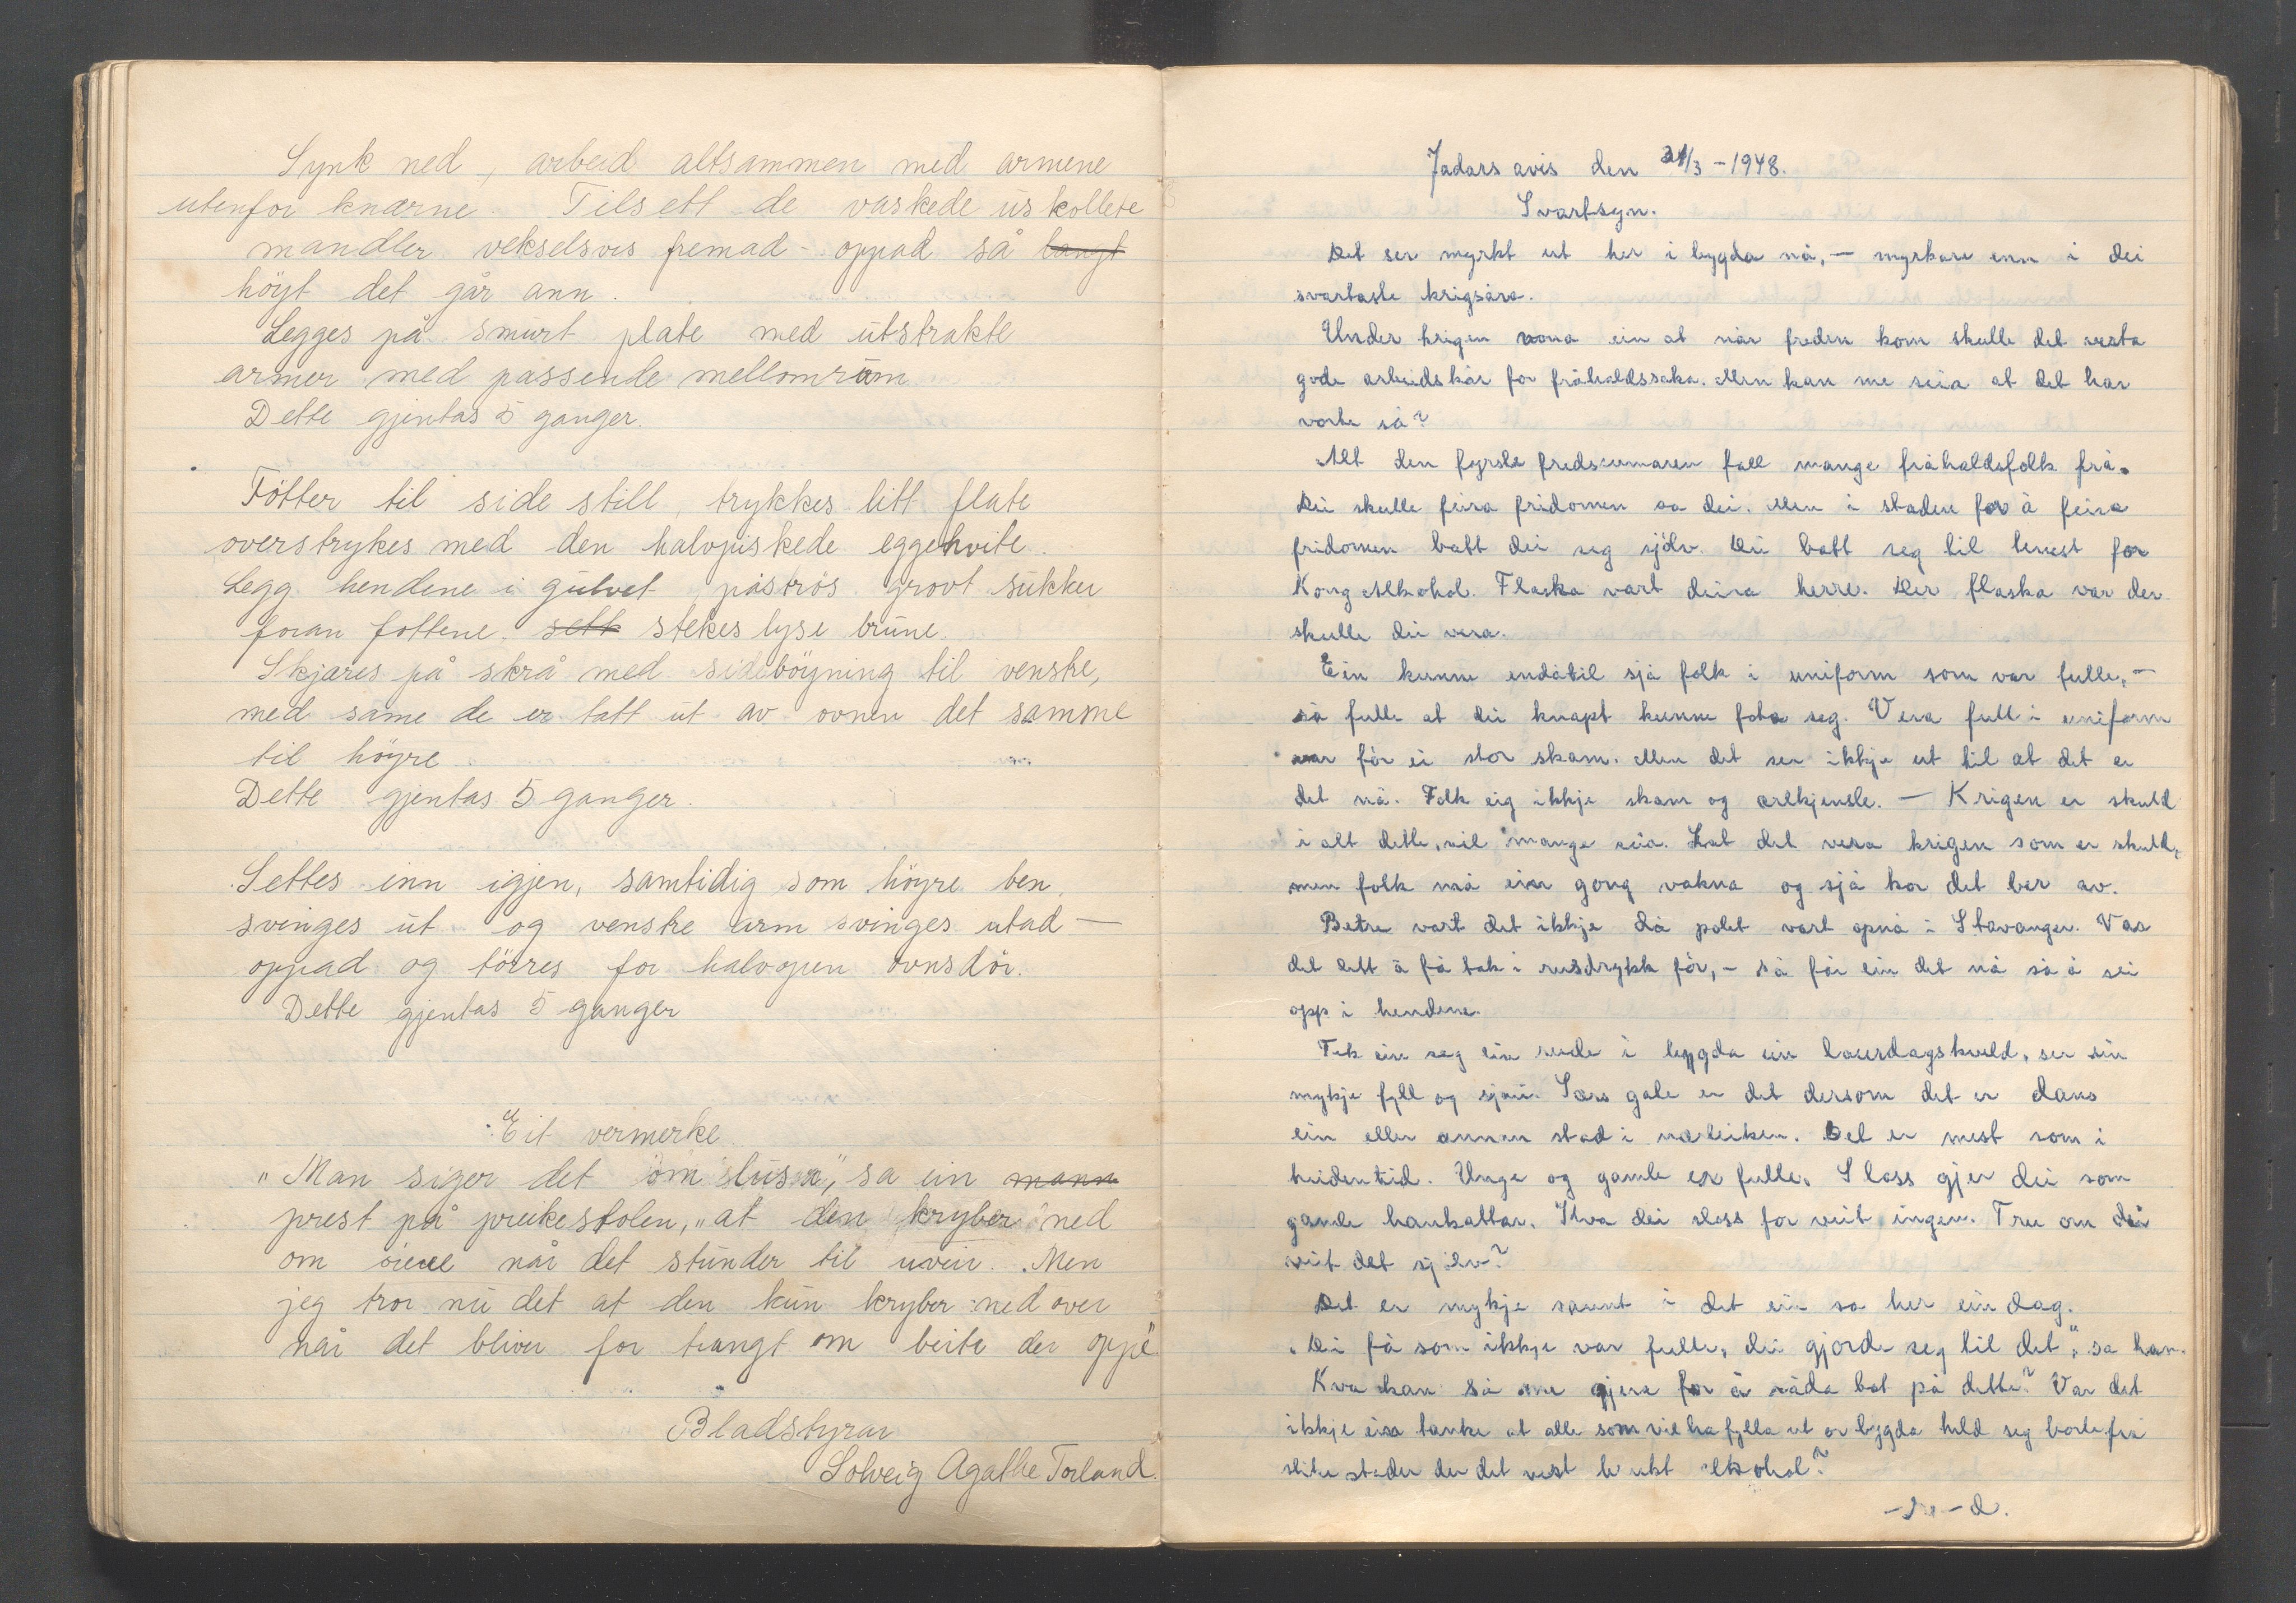 Synk ned, arbeid altsammen med armene
utenfor knærne. Tilsett de vaskede uskollete
mandler vekselsvis fremad - oppad så langt
höyt det går ann.
Legges på smurt plate med utstrakte
armer med passende mellomrum
Dette gjentas 5 ganger.
Fötter til side still, trykkes litt flate
overstrykes med den halvpiskede eggehvite.
Legg hendene i gulvet, påströs grovt sukker
foran föttene. sett stekes lyse brune.
Skjæres på skrå med sideböyning til venstre,
med same de er tatt ut av ovnen det samme
til höyre
Dette gjentas 5 ganger.
Settes inn igjen, samtidig som höyre ben
svinges ut og venstre arm svinges utad —
oppad og törres for halvopen ovnsdör.
Dette gjentas 5 ganger
Eit vermerke
"Man siger det om lusa", sa ein mann
prest på preikestolen, "at den kryber ned
om når det stunder til uveir. Men
jeg tror nu det at den kun kryber ned over
når det bliver for trangt om beite der oppe"
Bladstyrar
Solveig Agathe Torland.
Jadars avis den 31/3 - 1948.
Svartsyn.
Det ser myrkt ut her i bygda nå, — myrkare enn i dei
svartaste krigsåra.
Under krigen vona ein at når freden kom skulle det verta
gode arbeidskår for fråhaldssaka. Men kan me seia at det har
vorte så?
Alt den fyrste fredssumaren fall mange fråhaldsfolk frå.
Dei skulle feira fridomen sa dei. Men i staden for å feira
fridomen batt dei seg sjölv. Dei batt seg til tenest for
Kong Alkohol. Flaska vart deira herre. Der flaska var der
skulle dei vera.
Ein kunne endåtil sjå folk i uniform som var fulle, —
så fulle at dei knapt kunne fota seg. Vera full i uniform
var för ei stor skam. Men det ser ikkje ut til at det er
det nå. Folk eig ikkje skam og ærekjensle. — Krigen er skuld
i alt dette, vil mange seia. Lat det vera krigen som er skuld,
men folk må ein gong vakna og sjå kor det ber av.
Betre vart det ikkje då polet vart opna i Stavanger. Var
det lett å få tak i rusdrykk för, - så får ein det nå så å sei
opp i hendene.
Tek ein seg ein runde i bygda ein laurdagskveld, ser ein
mykje fyll og sjau. Særs gale er det dersom det er dans
ein eller annan stad i nærleiken. Det er mest som i
heidentid. Unge og gamle er fulle. Sloss gjer dei som
gamle hankattar. Kva dei sloss for veit ingen. Tru om dei
veit det sjölv?
Det er mykje sannt i det ein sa her ein dag.
"Dei få som ikkje var fulle, dei gjorde seg til det", sa han.
Kva kan så me gjera for å råda bot på dette? Var det
ikkje ein tanke at alle som vil ha fylla ut or bygda held seg borte frå
slike stader der det vert brukt alkohol?